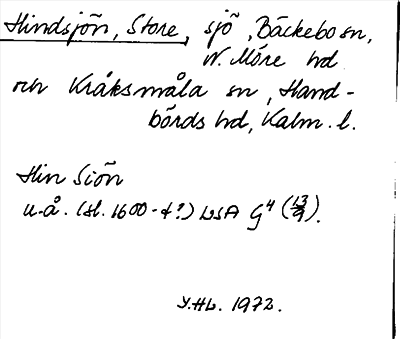 Hindsjön, Store, sjö, Bäckebo sn,
N. Möre hd
och Kråksmåla sn, Hand-
börds hd, Kalm. l.
Hin Siön
u.å. (sl. 1600-t?) LSA G4 (13/9).
Y.Hb. 1972.